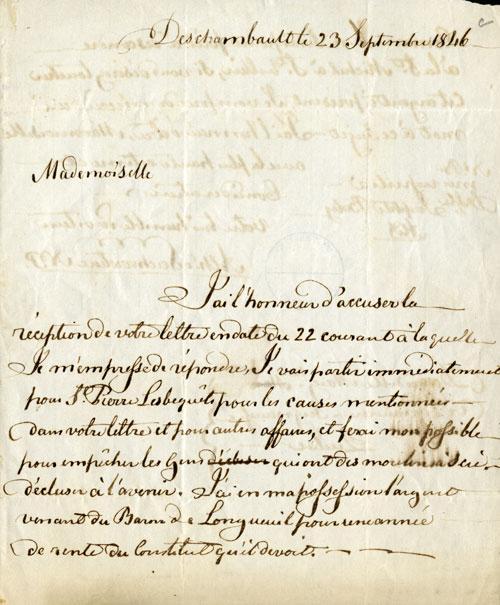 Deschambault le 23 Septembre 1846
Mademoiselle
J'ai l'honneur d'accuser la
réception de votre lettre en date du 22 courant à laquelle
Je m'empresse de répondre, Je vais partir immédiatement
pour St. Pierre Lesbequêts pour les causes mentionnées
dans votre lettre et pour autres affaires, et ferai mon possible
pour empêcher les Gens qui ont des moulins à scie
d'écluser à l'avenir. J'ai en ma possession l'argent
venant du Baron de Longueuil pour une année
de rente du Constitut qu'il devoit.